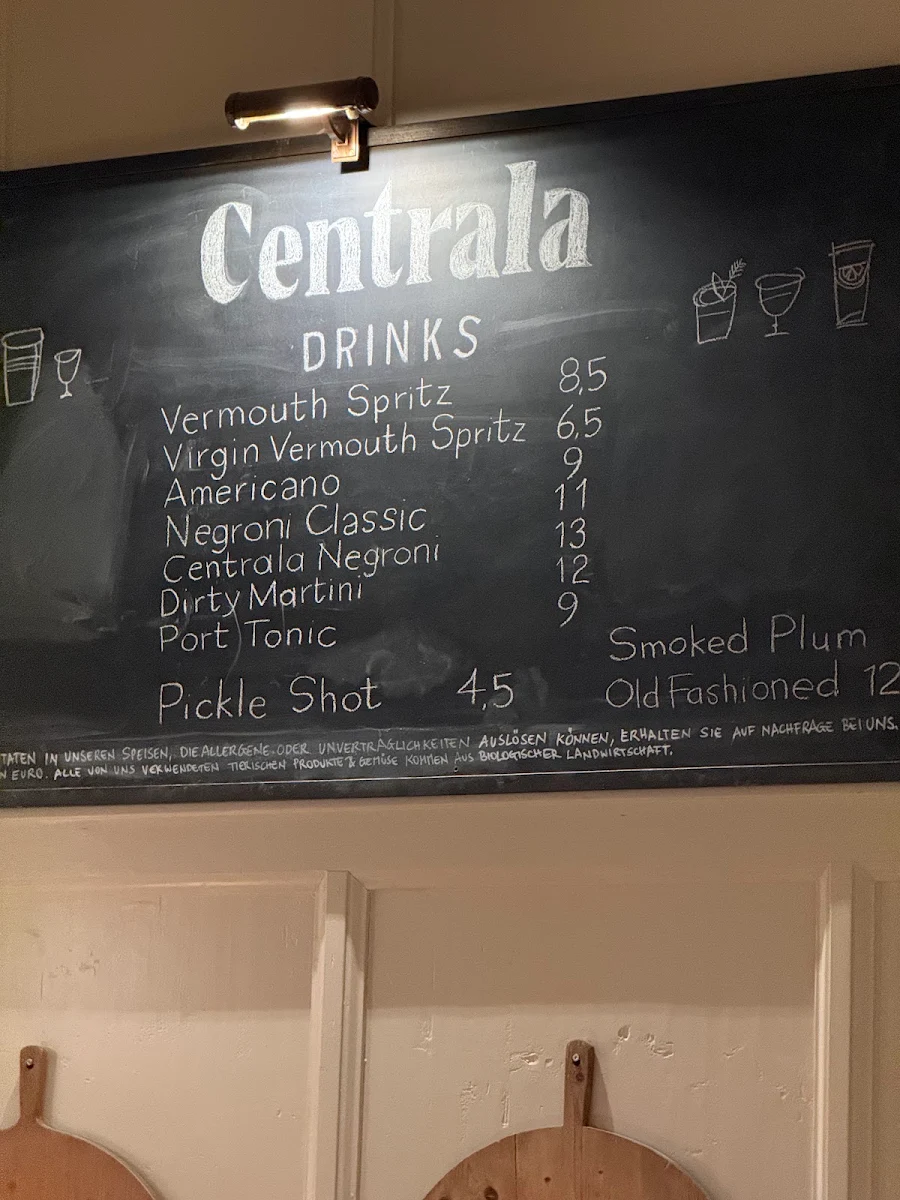 Centrala
DRINKS
Vermouth Spritz 8,5
Virgin Vermouth Spritz 6,5
Americano 9
Negroni Classic 11
Centrala Negroni 13
Dirty Martini 12
Port Tonic 9
Smoked Plum
Old Fashioned 12
Pickle Shot 4,5
TATEN IN UNSEREN SPEISEN, DIE ALLERGENE ODER UNVERTRÄGLICHKEITEN AUSLÖSEN KÖNNEN, ERHALTEN SIE AUF NACHFRAGE BEI UNS.
N EURO. ALLE VON UNS VERWENDETEN TIERISCHEN PRODUKTE & GEMÜSE KOMMEN AUS BIOLOGISCHER LANDWIRTSCHAFT.